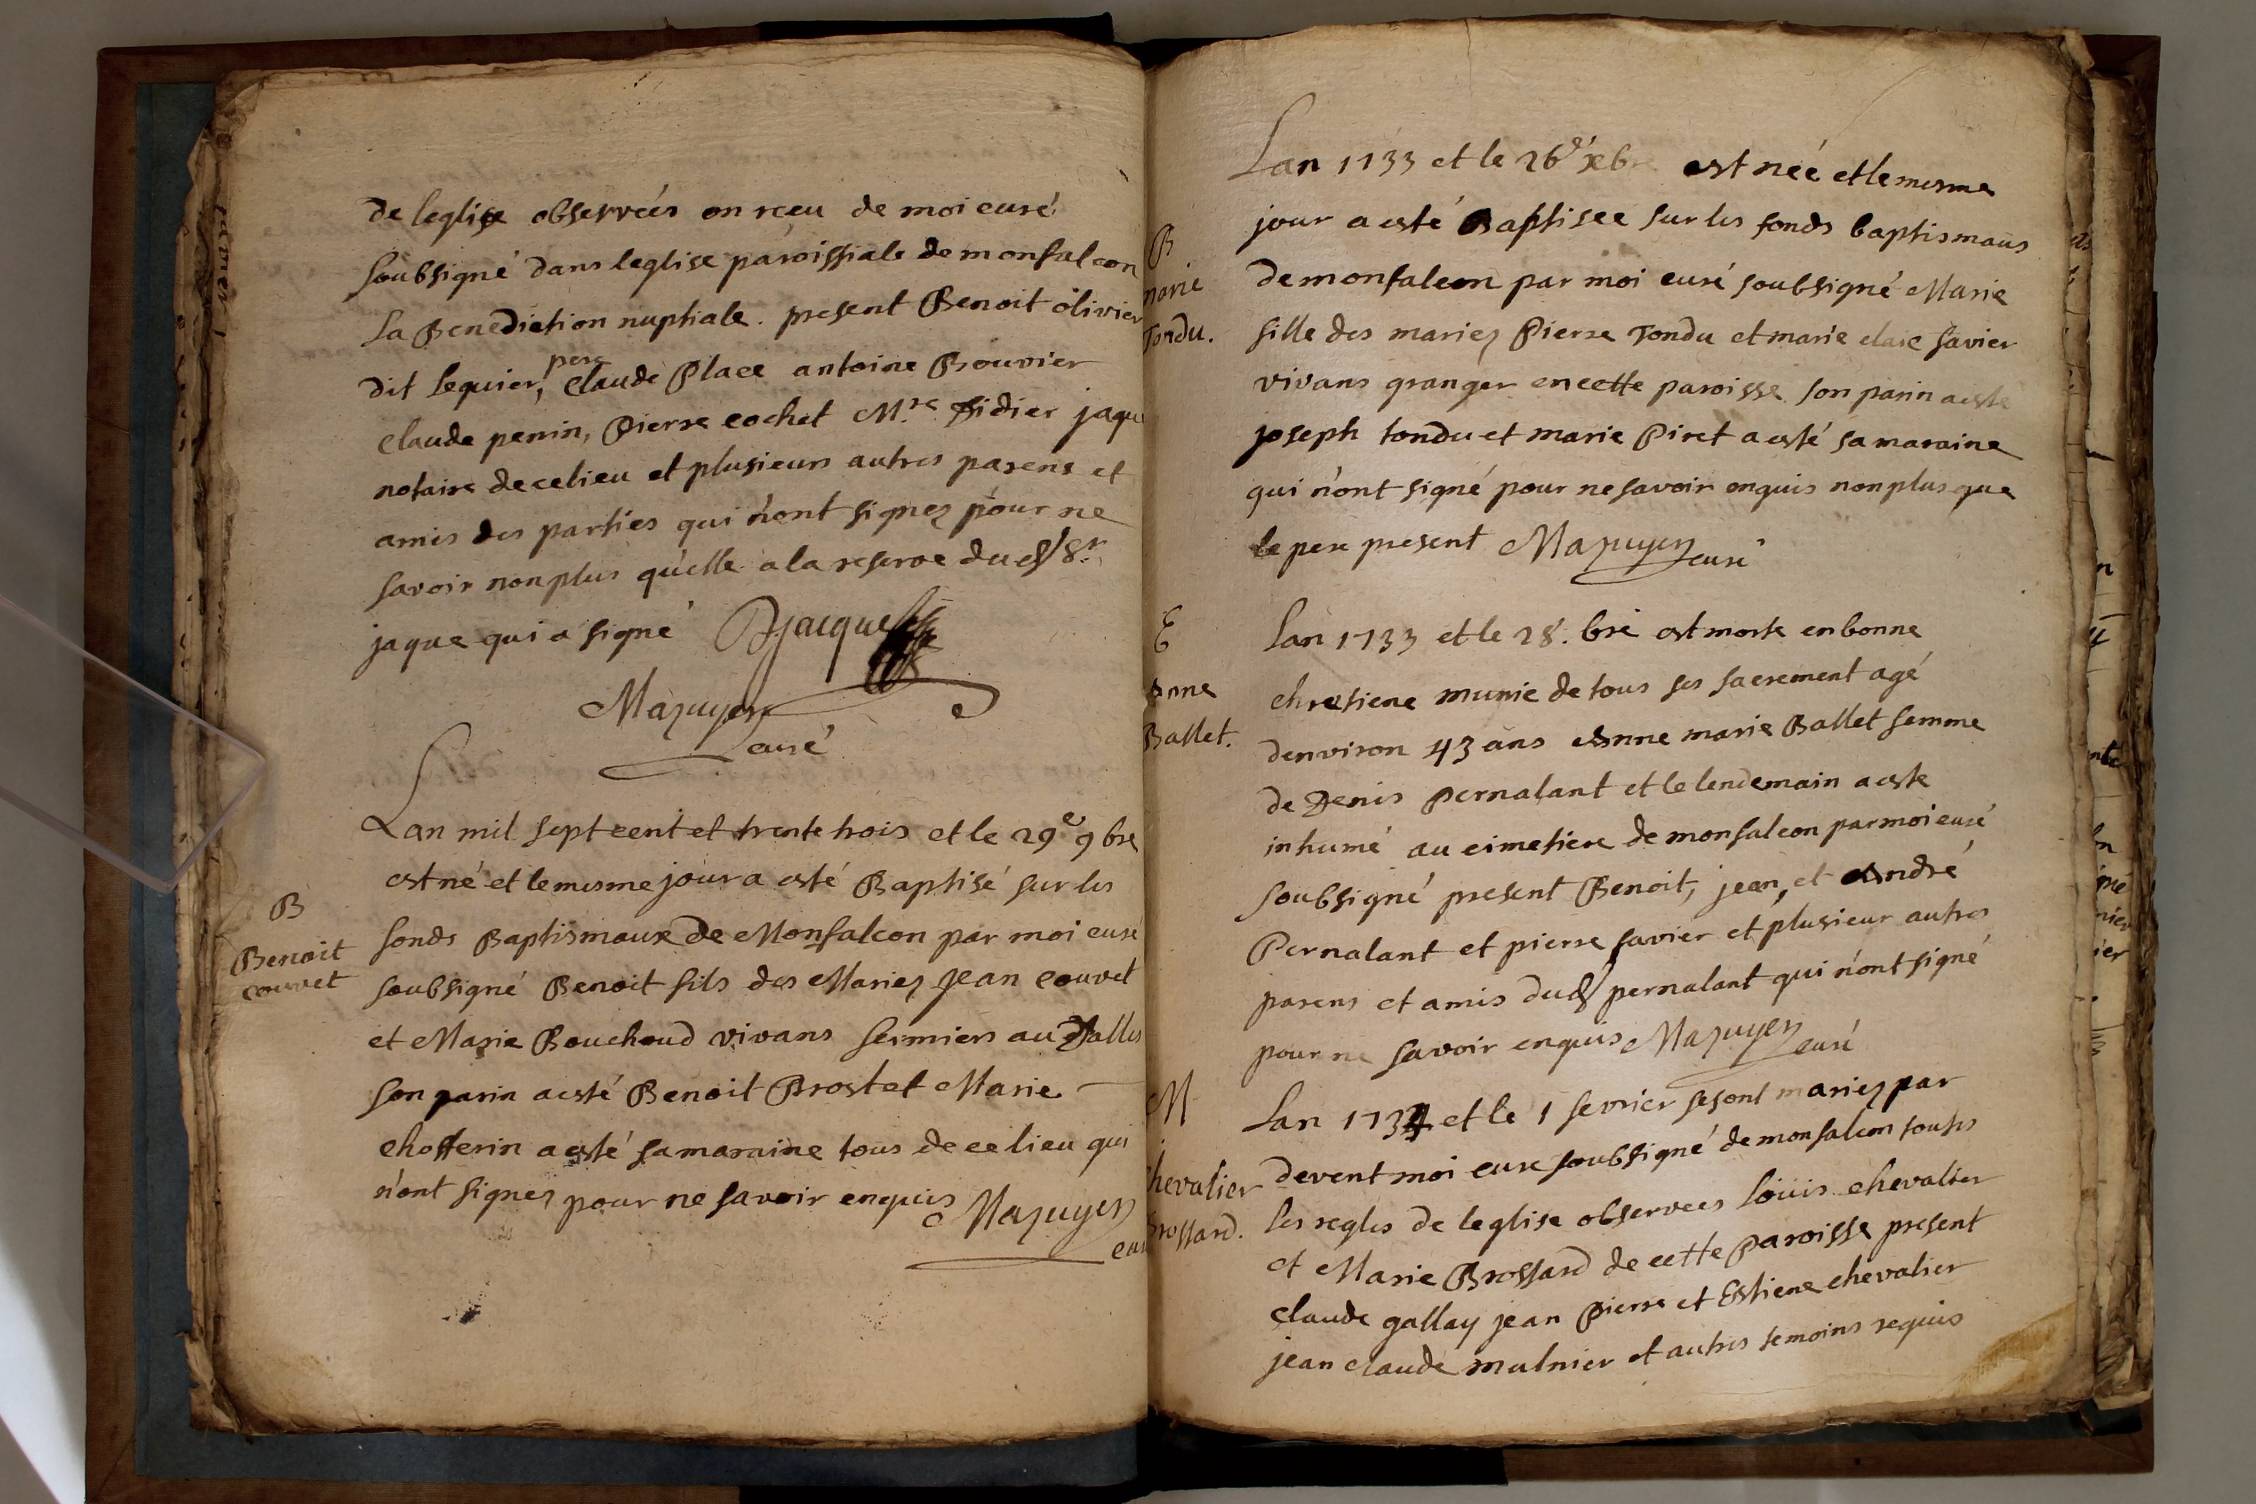 de leglise observeés on rceu de moi curé
soubsigné dans leglise paroissiale de monfalcon
la Benediction nuptiale. present Benoit olivier
dit lequier, pere Claude Place antoine Bouvier
Claude perrin, Pierre cochet M.re Didier jaque
notaire de ce lieu et plusieurs autres parens et
amis des parties qui n'ont signez pour ne
savoir non plus qu'elle a la reserve dud Sr.
jaque qui a signé DJacque
Mazuyer
curé
Lan mil sept cent et trente trois et le 29e 9bre
est né et le mesme jour a esté Baptisé sur les
B
Benoit
couvet
fonds Baptismaux de Monfalcon par moi curé
soubsigné Benoit fils des Mariez Jean couvet
et Marie Bouchoud vivans fermiers au
son parin a esté Benoit Brost et Marie
chofferin a esté sa maraine tous de ce lieu qui
n'ont signez pour ne savoir enquis Mazuyer
cur
Lan 1733 et le 26e xbre est neé et le mesme
jour a esté Baptisee sur les fonds baptismaus
B
marie
Tondu.
de monfalcon par moi curé soubsigné Marie
fille des mariez Pierre Tondu et marie claie favier
vivans granger en cette paroisse son parin a esté
joseph tondu et marie Piret a esté sa maraine
qui n'ont signé pour ne savoir enquis non plus que
le pere present Mazuyer curé
E
Anne
Ballet.
Lan 1733 et le 28. bre est morte en bonne
chretiene munie de tous ses sacrement agé
denviron 43 ans Anne marie Ballet femme
de Denis Pernalant et le lendemain a este
inhumé au cimetiere de monfalcon par moi curé
soubsigné present Benoit, jean, et André
Pernalant et pierre favier et plusieur autres
parens et amis dud pernalant qui n'ont signé
pour ne savoir enquis Mazuyer curé
M
chevalier
Brossard.
Lan 1734 et le 1 fevrier se sont mariez par
devent moi cure soubsigné de monfalcon toutes
les regles de leglise observees louis chevalier
et Marie Brossard de cette Paroisse present
Claude gallay jean Pierre et Estiene chevalier
jean claude mulnier et autres temoins requis